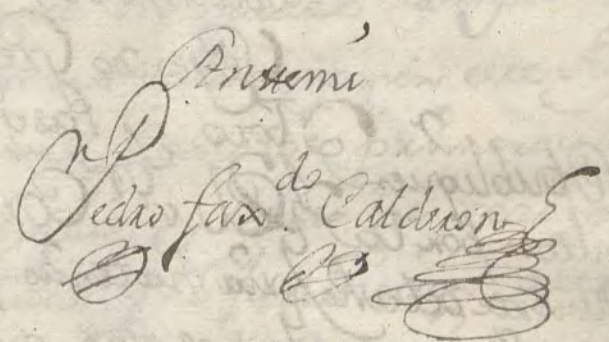 Antemi
Pedro Faxdo Calderon